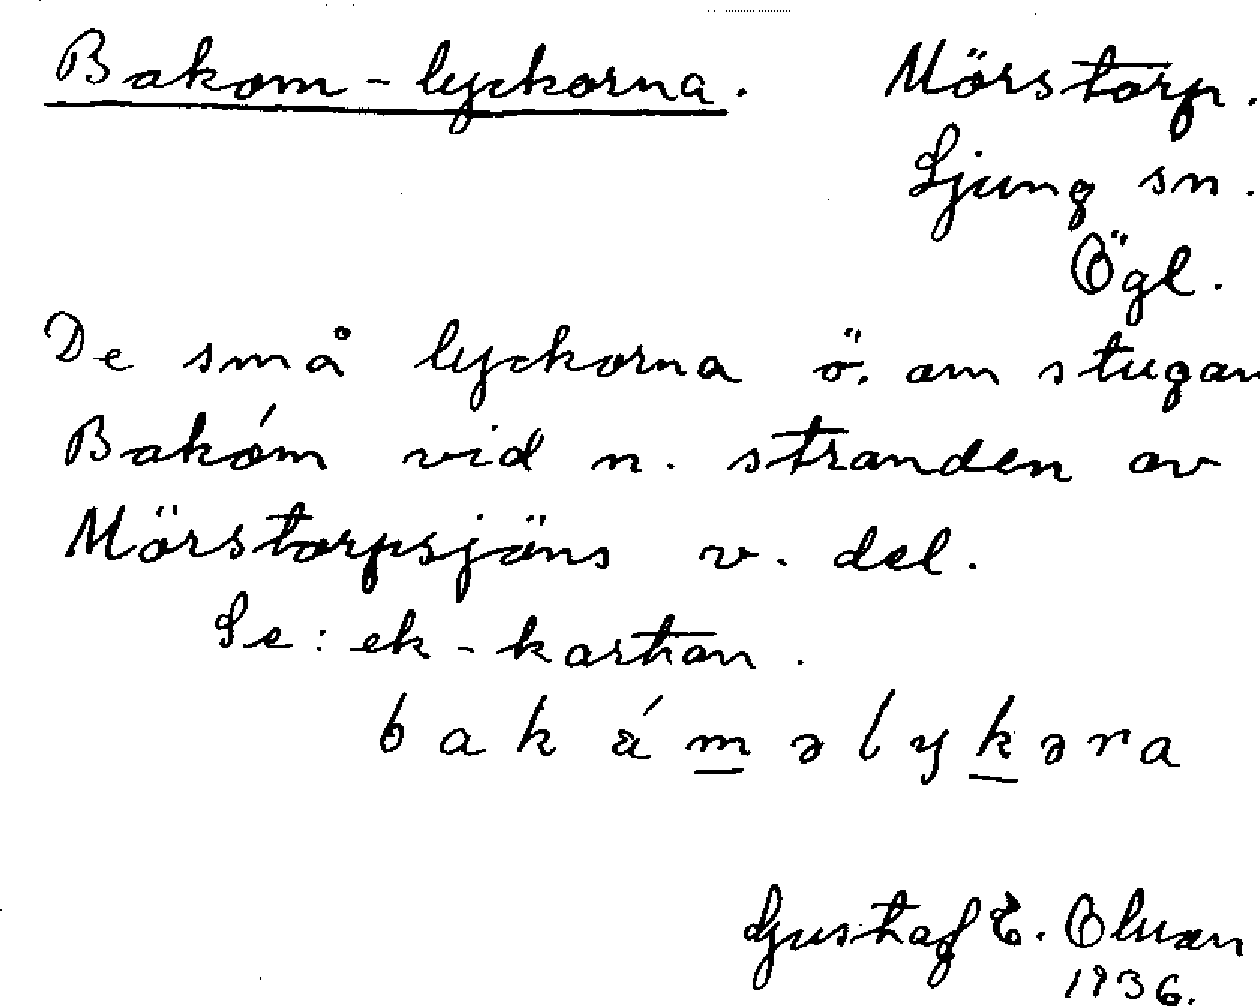 Bakom-lyckorna. Mörstorp.
Ljung sn.
Ögl.
De små lyckorna ö. om stugan
Bakóm vid n. stranden av
Mörstorpsjöns v. del.
Se: ek-kartan.
bakåməlykəra
Gustaf E.
1936.